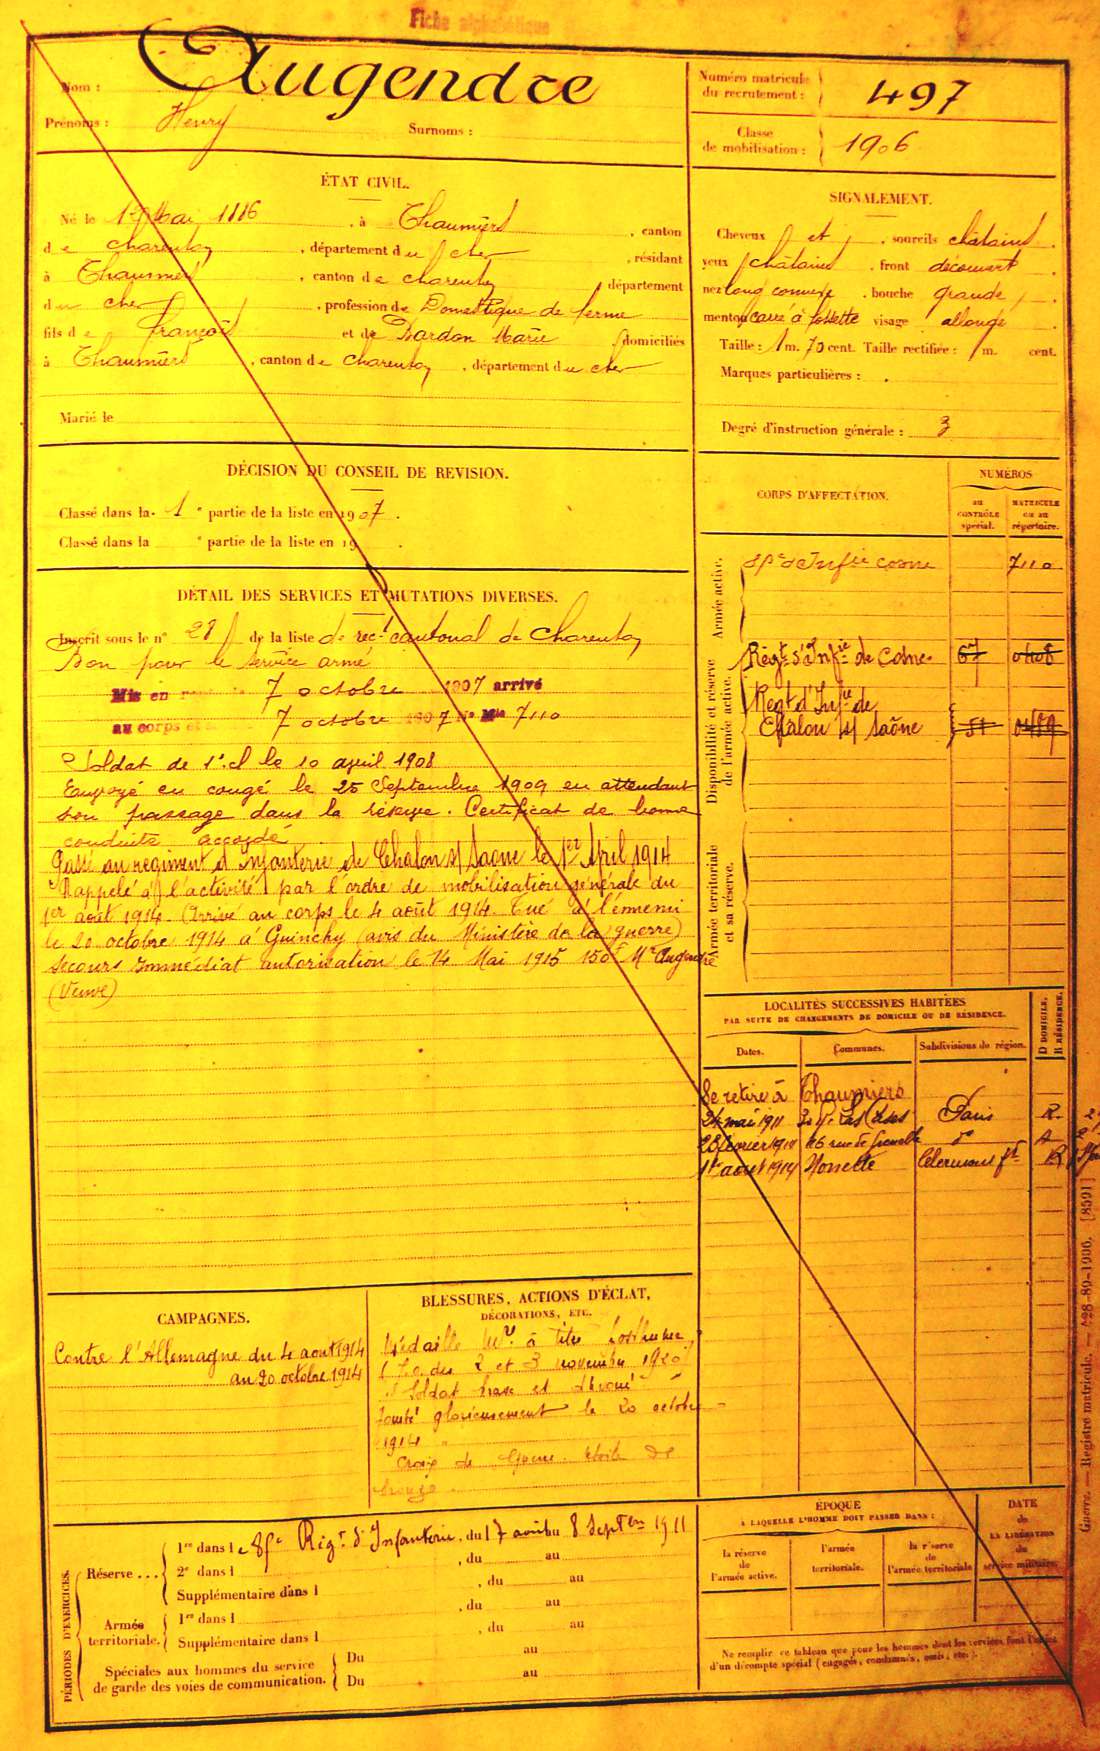 Fiche alphabétique
Nom : Augendre
Prénoms : Henry Surnoms :
Numéro matricule du recrutement : 497
Classe de mobilisation : 1906
ÉTAT CIVIL.
Né le 1er Mai 1886, à Thaumiers, canton
de Charenton, département du Cher, résidant
à Thaumiers, canton de Charenton, département
du Cher, profession de Domestique de ferme
fils de François et de Dardon Marie domiciliés
à Thaumiers, canton de Charenton, département du Cher
Marié le
SIGNALEMENT.
Cheveux et sourcils châtains.
yeux châtains, front découvert.
nez long convexe, bouche grande,
menton carré à fossette visage allongé.
Taille : 1 m. 70 cent. Taille rectifiée : 1 m. cent.
Marques particulières : .
Degré d'instruction générale : 3
DÉCISION DU CONSEIL DE REVISION.
Classé dans la 1e partie de la liste en 1907.
Classé dans la e partie de la liste en 19
DÉTAIL DES SERVICES ET MUTATIONS DIVERSES.
Inscrit sous le n° 28 de la liste de rect cantonal de Charenton
Bon pour le service armé
Mis en route le 7 octobre 1907 arrivé
au corps et 7 octobre 1907 No Mle 7110
Soldat de 1e cl le 10 april 1908
Envoyé en congé le 25 Septembre 1909 en attendant
son passage dans la réserve. Certificat de bonne
conduite accordé
Passé au regiment d'Infanterie de Chalon s/ Saone le 1er April 1914
Rappelé à l'activité par l'ordre de mobilisation générale du
1er août 1914. Arrivé au corps le 4 août 1914. Tué à l'ennemi
le 20 octobre 1914 à Guinchy (avis du Ministère de la guerre)
Secours immédiat autorisation le 14 Mai 1915 150f Me Augendre
(Veuve)
CORPS D'AFFECTATION.
NUMÉROS
au CONTRÔLE spécial.
MATRICULE ou au répertoire.
Armée active.
d'Infie Cosne 7110
Disponibilité et réserve de l'armée active.
Régt d'Infie de Cosne 67 0408
Regt d'Infie de
Chalon s/ Saône 51
Armée territoriale et sa réserve.
LOCALITÉS SUCCESSIVES HABITÉES
PAR SUITE DE CHANGEMENTS DE DOMICILE OU DE RÉSIDENCE.
Dates. Communes. Subdivisions de région. D DOMICILE, R RÉSIDENCE.
Se retire à Thaumiers
24 mai 1911 Las Cases Paris R
26 rue de Grenelle do
1er aout 1914 Nonette Clermont Ft R
CAMPAGNES.
Contre l'Allemagne du 4 aout 1914
au 20 octobre 1914
BLESSURES, ACTIONS D'ÉCLAT,
DÉCORATIONS, ETC.
Médaille Mre à titre Posthume
(J.O. des 2 et 3 novembre 1920)
"Soldat brave et dévoué
tombé glorieusement le 20 octobre
1914"
Croix de Guerre étoile de
bronze
PÉRIODES D'EXERCICES.
Réserve...
1re dans le 85e Régt d'Infanterie, du 17 août au 8 Septbre 1911
2e dans l , du au
Supplémentaire dans l , du au
Armée territoriale.
1re dans l , du au
Supplémentaire dans l , du au
Spéciales aux hommes du service de garde des voies de communication.
Du au
Du au
ÉPOQUE
À LAQUELLE L'HOMME DOIT PASSER DANS :
la réserve de l'armée active.
l'armée territoriale.
la réserve de l'armée territoriale
DATE de LA LIBÉRATION du service militaire.
Ne remplir ce tableau que pour les hommes dont les services font l'objet
d'un décompte spécial (engagés, condamnés, omis, etc.).
Guerre. — Registre matricule. — 428-89-1906. [8591]